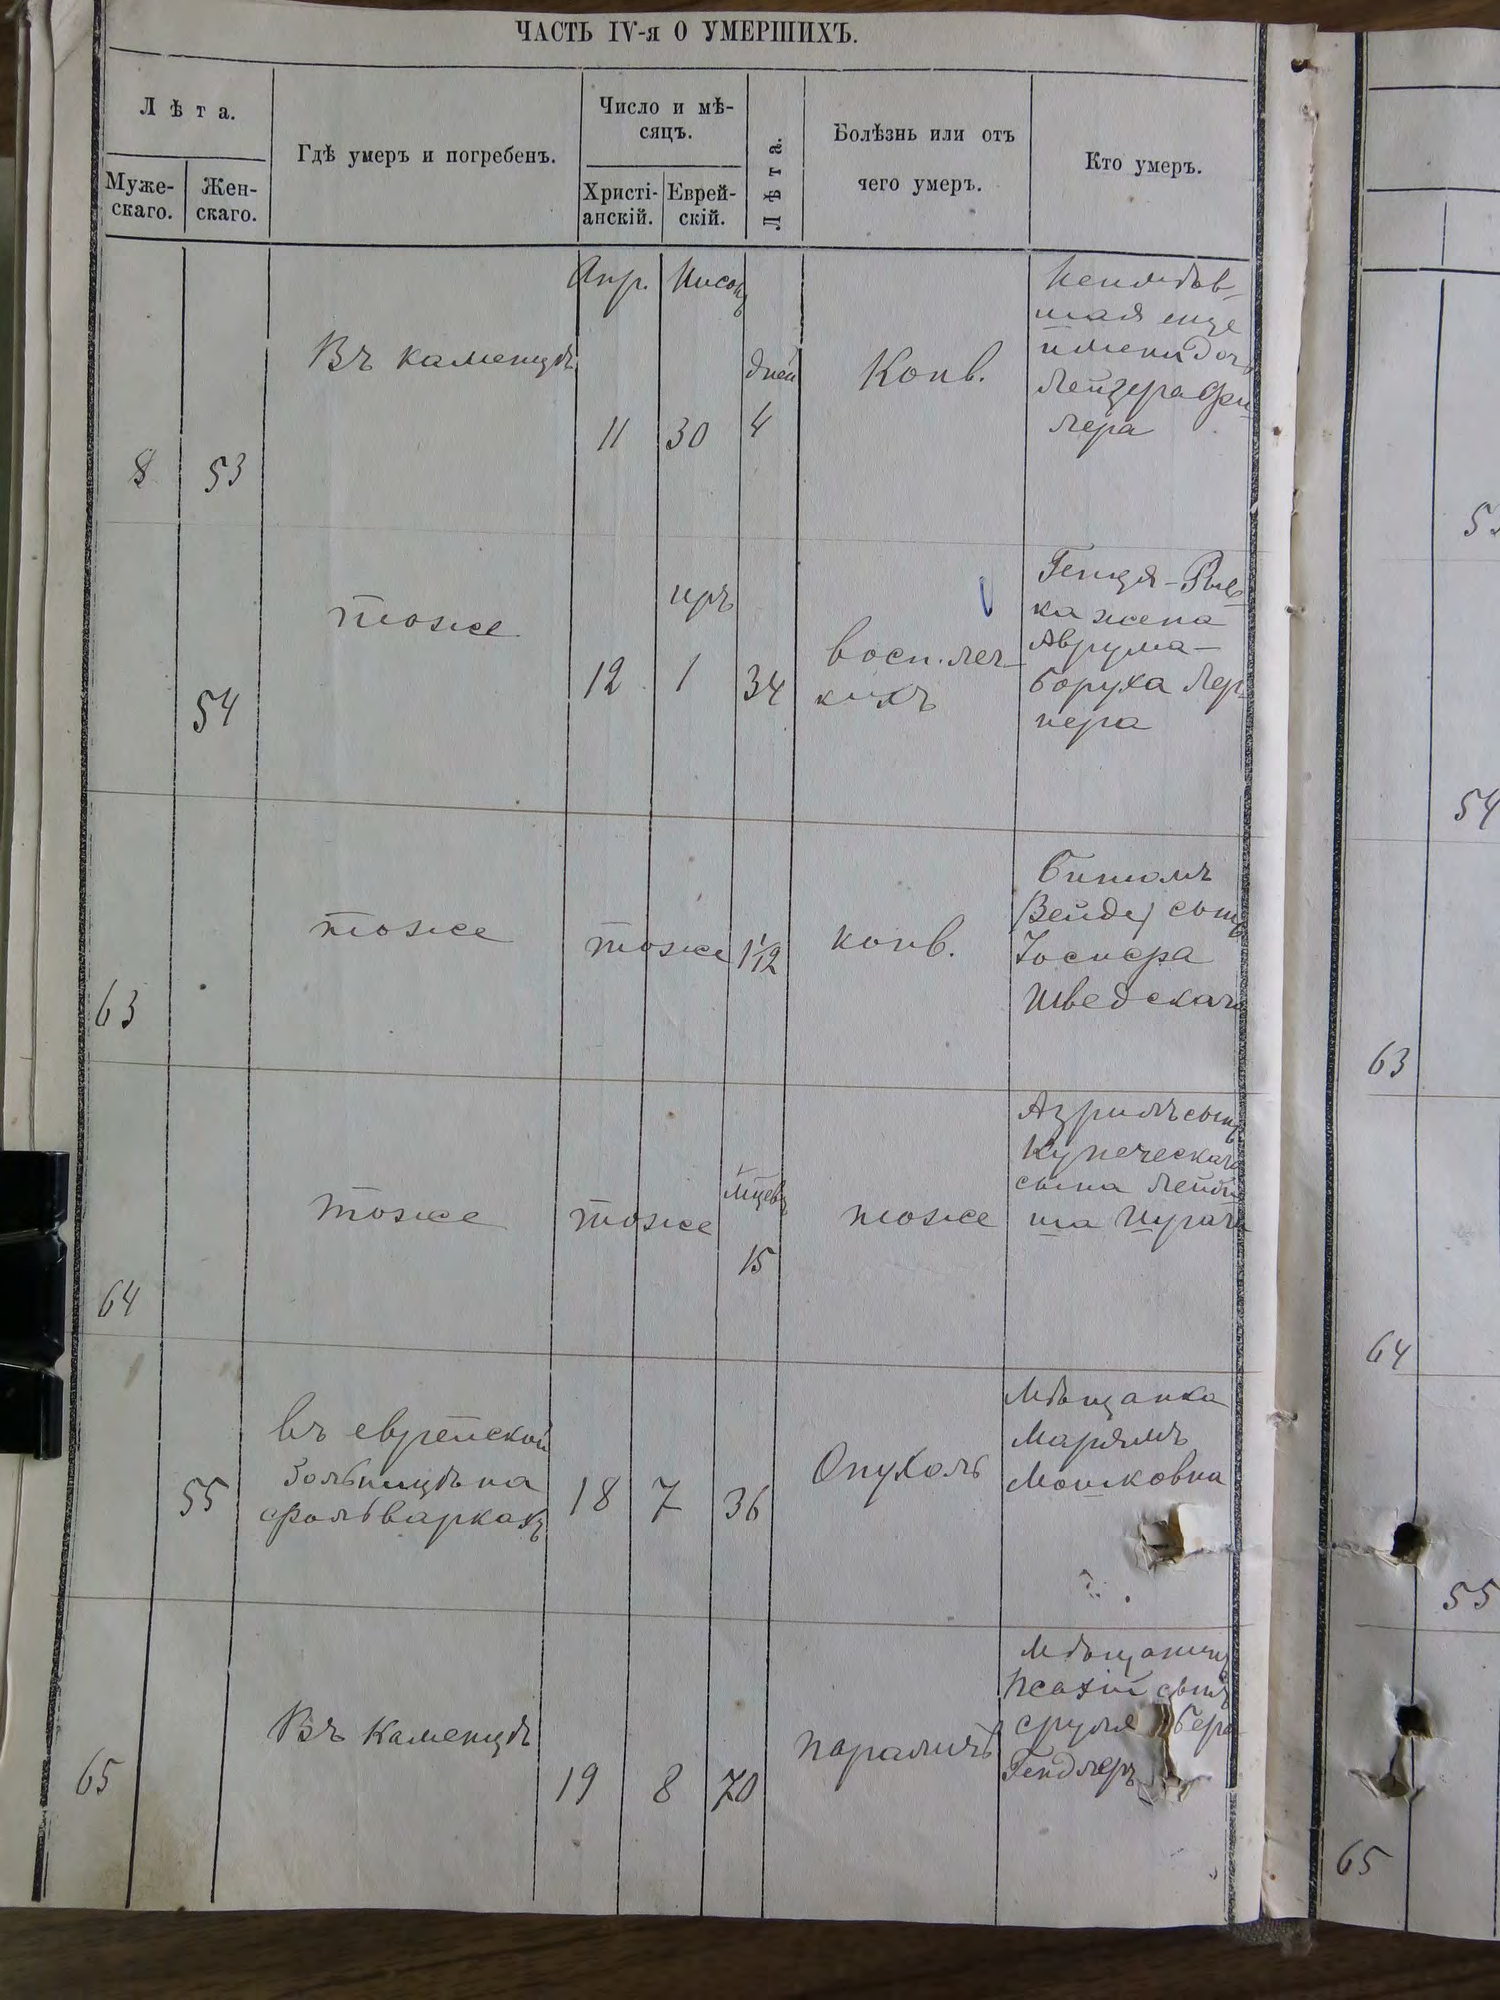 ЧАСТЬ IV-я О УМЕРШИХЪ.
Лѣта.
Муже-
скаго.
Жен-
скаго.
Гдѣ умеръ и погребенъ.
Число и мѣ-
сяцъ.
Христі-
анскій.
Еврей-
скій.
Лѣта.
Болѣзнь или отъ
чего умеръ.
Кто умеръ.
8
53
Въ каменцѣ
Апр.
11
Нисонъ
30
дней
4
Конв.
Неимѣв-
шая еще
имени дочь
Лейзера Фи-
лера
54
тоже
12
иръ
1
34
восп. лег-
кихъ
Генця-Рыв-
ка жена
Аврума-
Боруха Лер-
нера
63
тоже
тоже
1 1/12
конв.
сынъ
Іосифа
Шведскаго
64
тоже
тоже
м-цевъ
15
тоже
Азрилъ сынъ
Купеческаго
сына Лейби-
ша
55
въ еврейской
больницѣ на
фольваркахъ
18
7
36
Опухоль
Мѣщанка
Марямъ
Мошковна
65
Въ Каменцѣ
19
8
70
параличъ
Мѣщанинъ
сынъ
Сруля Бера
Гендлеръ
5
54
63
64
55
65